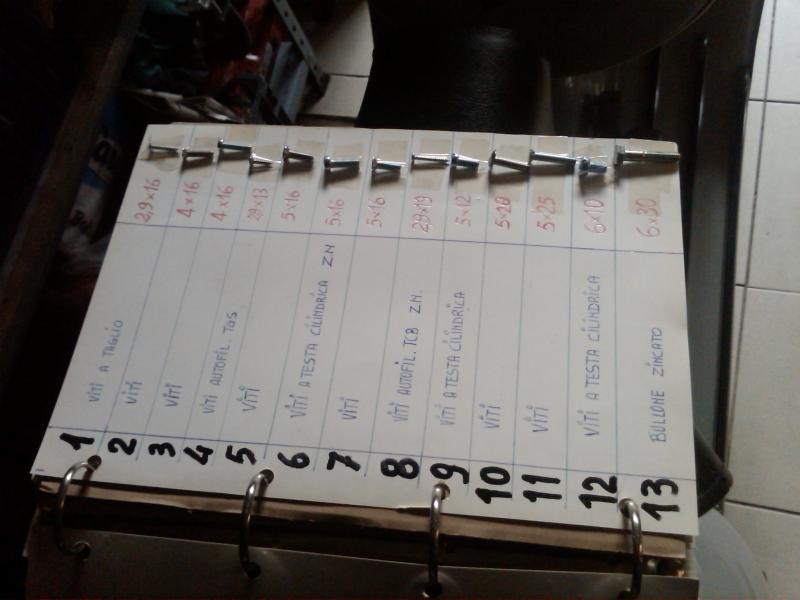 1 VITI A TAGLIO 2,9×16
2 VITI 4×16
3 VITI 4×16
4 VITI AUTOFIL. TGS 29×13
5 VITI 5×16
6 VITI A TESTA CILINDRICA ZN 5×16
7 VITI 5×16
8 VITI AUTOFIL. TCB ZN. 29×19
9 VITI A TESTA CILINDRICA 5×12
10 VITI 5×20
11 VITI 5×25
12 VITI A TESTA CILINDRICA 6×10
13 BULLONE ZINCATO 6×30